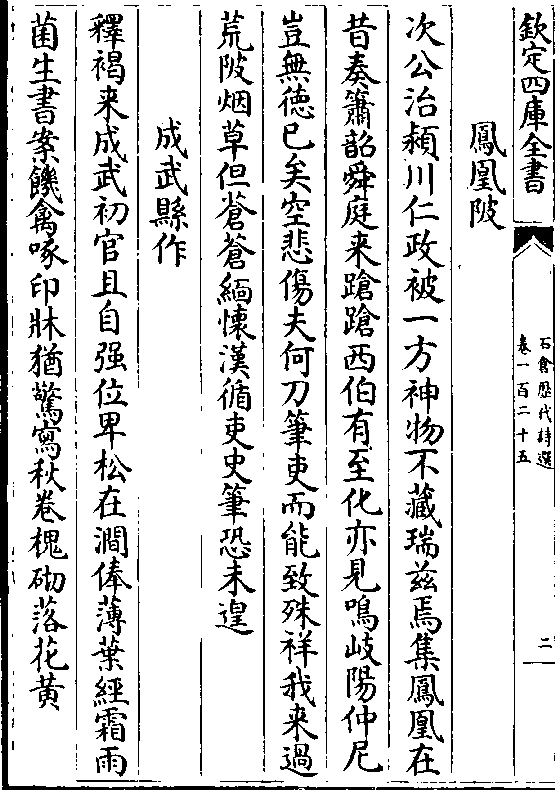 欽定四庫全書
石倉歷代詩選
卷一百二十五
二
鳳凰陂
次公治潁川仁政被一方神物不藏瑞茲焉集鳳凰在
昔奏簫韶舜庭来蹌蹌西伯有至化亦見鳴岐陽仲尼
豈無徳已矣空悲傷夫何刀筆吏而能致殊祥我来過
荒陂烟草但蒼蒼緬懷漢循吏史筆恐未遑
成武縣作
釋褐来成武初官且自强位卑松在澗俸薄葉經霜雨
菌生書案饑禽啄印牀猶驚寫秋卷槐砌落花黄